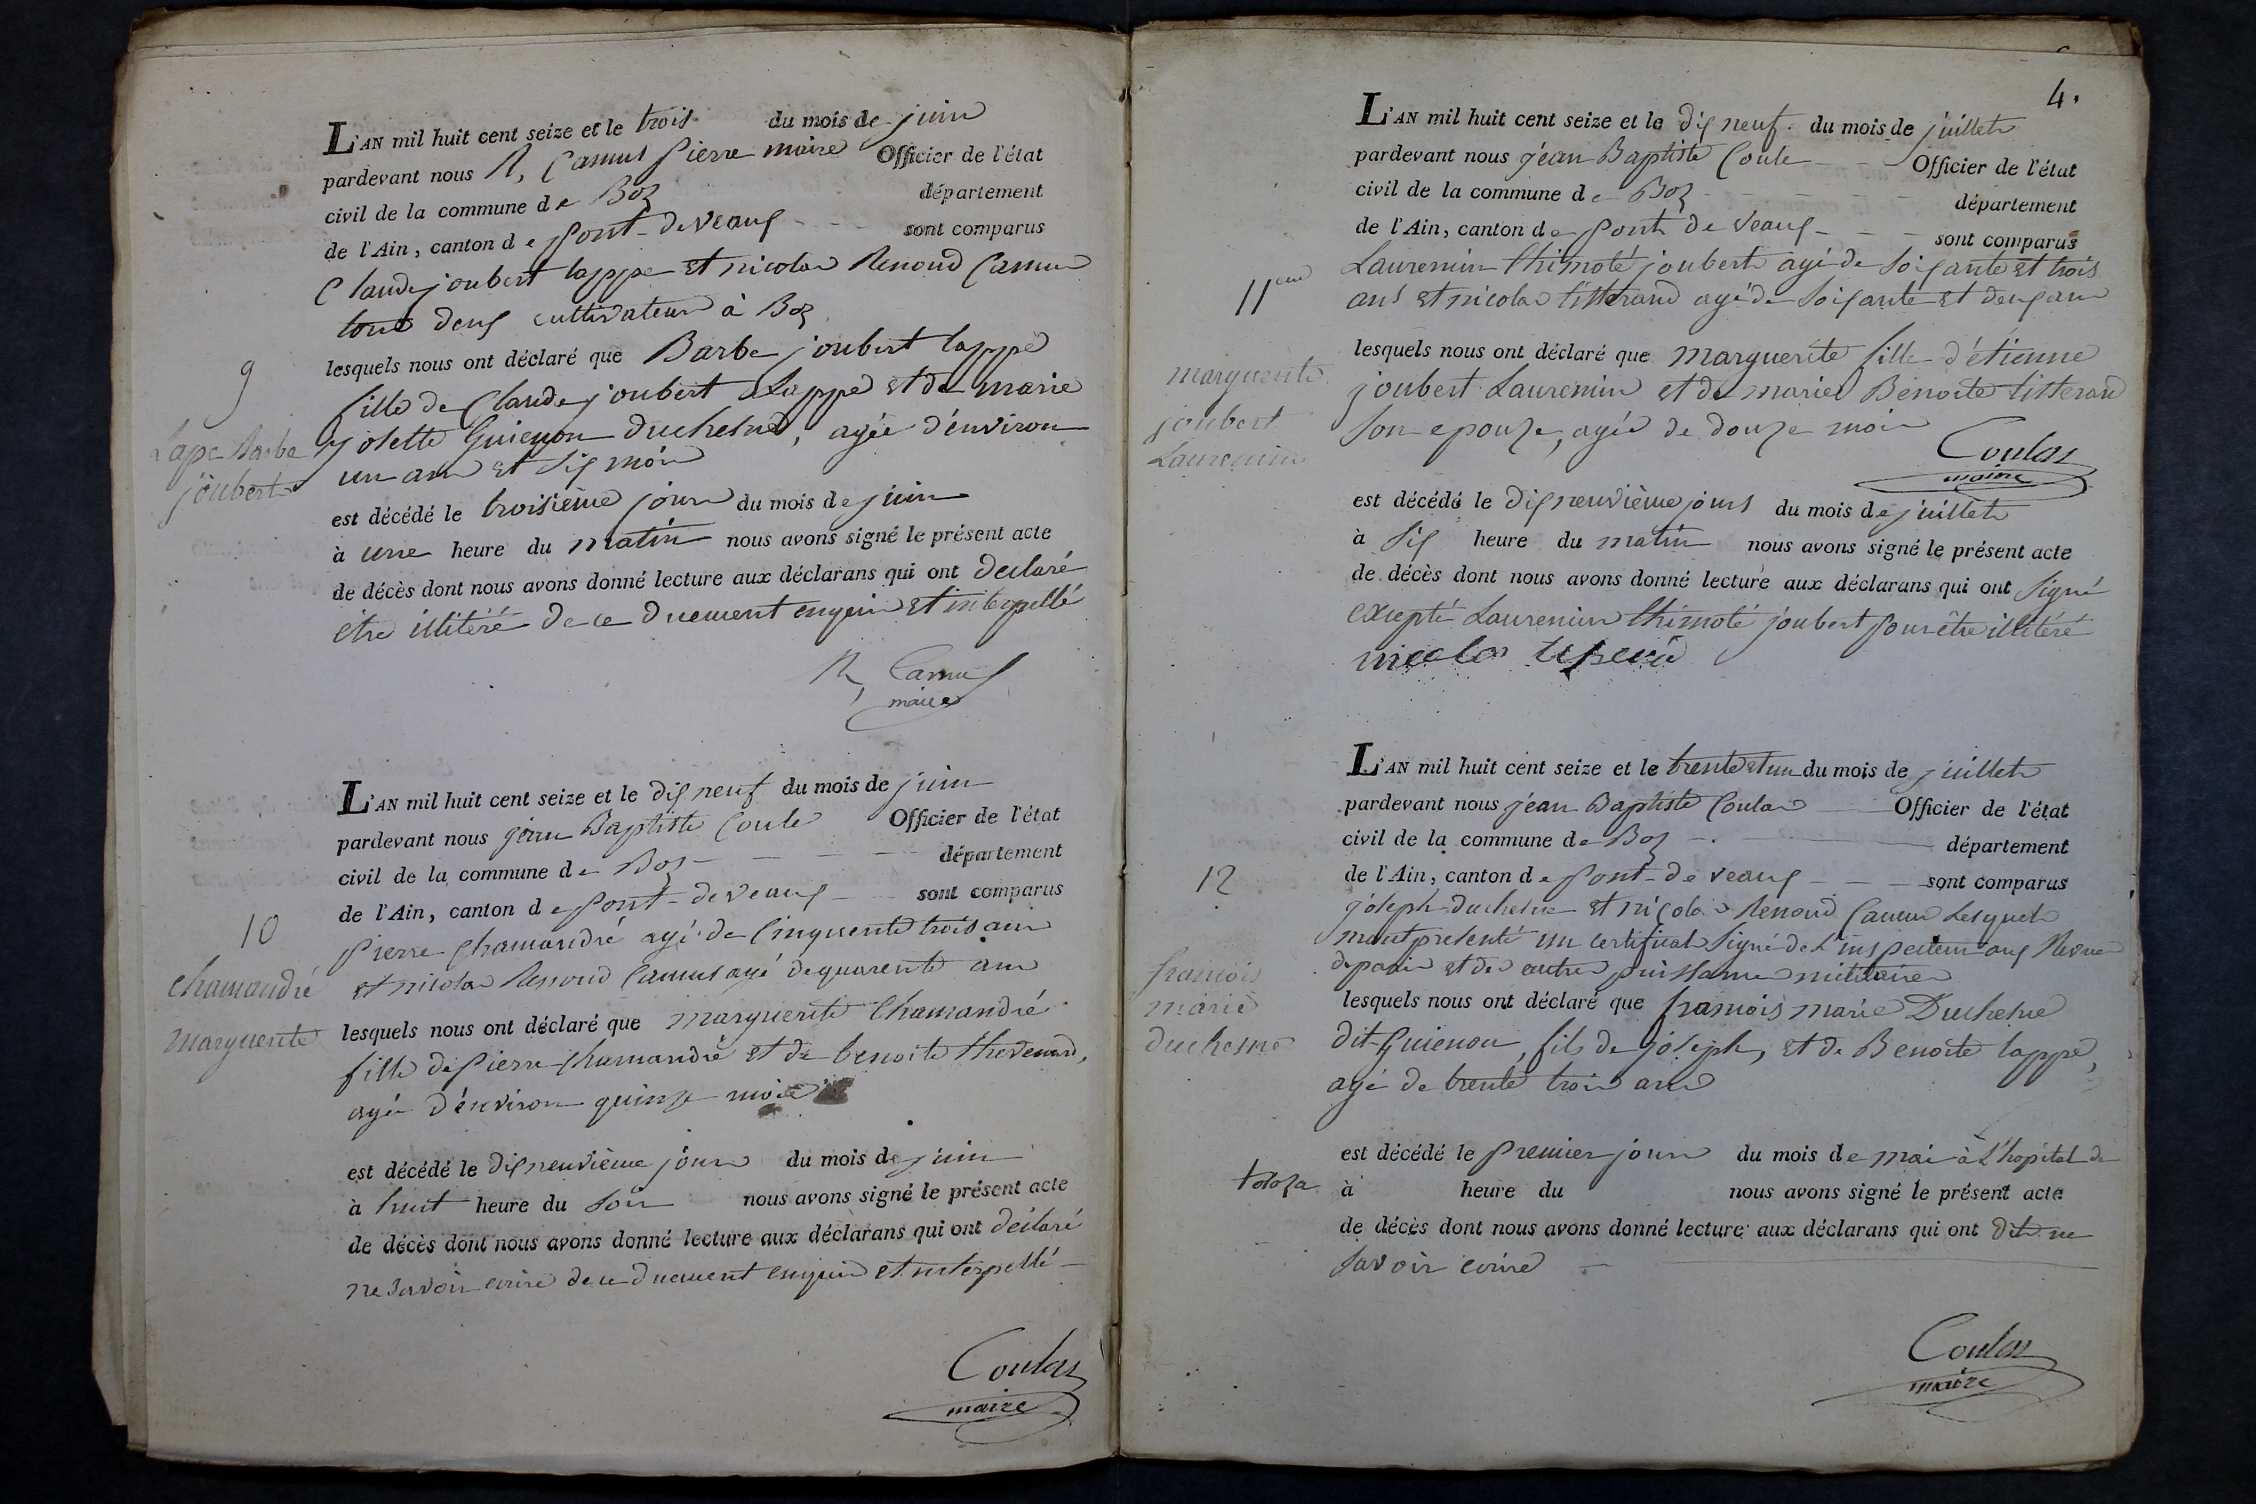 L'AN mil huit cent seize et le trois du mois de juin
pardevant nous R, Camus pierre maire Officier de l'état
civil de la commune de Boz département
de l'Ain, canton de pont-deveaux sont comparus
Claude joubert lappe et nicolas Renoud Camus
tous deux cultivateur à Boz
9
Lape Barbe
joubert
lesquels nous ont déclaré que Barbe joubert lappe
fille de Claude joubert Lappe et de marie
josette Guienon duchesne, agée d'environ
un ans et six mois
est décédé le troisième jour du mois de juin
à une heure du matin nous avons signé le présent acte
de décès dont nous avons donné lecture aux déclarans qui ont declaré
être illitéré de ce duement enquis et interpellé
R, Camus
maire
L'AN mil huit cent seize et le dix neuf du mois de juin
pardevant nous jean Baptiste Coula Officier de l'état
civil de la commune de Boz département
de l'Ain, canton de pont-deveaux sont comparus
10
Chamandré
marguerite
pierre Chamandré agé de Cinquente trois ans
et nicolas Renoud Camus agé dequarente ans
lesquels nous ont déclaré que marguerite Chamandré
fille de pierre Chamandré et de benoite thevenard,
agée d'environ quinze mois
est décédé le dix neuvième jour du mois de juin
à huit heure du soir nous avons signé le présent acte
de décès dont nous avons donné lecture aux déclarans qui ont déclaré
ne savoir ecrire de ce duement enquis et interpellé
Coulas
maire
4.
L'AN mil huit cent seize et le dix neuf du mois de juillet
pardevant nous jean Baptiste Coula Officier de l'état
civil de la commune de Boz département
de l'Ain, canton de pont de veaux sont comparus
11eme
marguerite
joubert
Laurencin
Laurencin thimoté joubert agé de soixante et trois
ans et nicolas titterand agé de soixante et deux ans
lesquels nous ont déclaré que marguerite fille d'étienne
joubert Laurencin et de marie Benoite titterand
son epouze, agée de douze mois
Coulas
maire
est décédé le dix neuvième jours du mois de juillet
à six heure du matin nous avons signé le présent acte
de décès dont nous avons donné lecture aux déclarans qui ont signé
excepté Laurencin thimoté joubert pour être illitéré
nicolas
L'AN mil huit cent seize et le trente et un du mois de juillet
pardevant nous jean Baptiste Coulas Officier de l'état
civil de la commune de Boz département
de l'Ain, canton de pont-de veaux sont comparus
12
francois
marie
duchesne
joseph duchesne et nicolas Renoud Camus Lesquels
mont presenté un certificat signé de L'inspecteur aux Revues
et des autres puissance militaire
lesquels nous ont déclaré que francois marie Duchesne
dit Guienon, fils de joseph, et de Benoite lappe,
agé de trente trois ans
est décédé le premier jour du mois de mai à L'hopital de
toloza à heure du nous avons signé le présent acte
de décès dont nous avons donné lecture aux déclarans qui ont dit ne
savoir ecrire
Coulas
maire